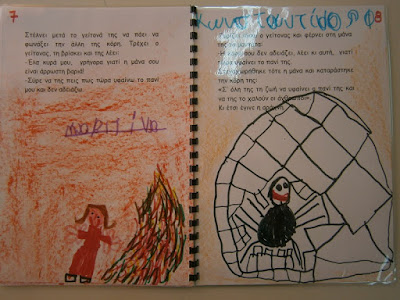 7
Στέλνει μετά το γείτονά της να πάει να
φωνάξει την άλλη της κόρη. Τρέχει ο
γείτονας, τη βρίσκει και της λέει:
-Έλα κυρά μου, γρήγορα γιατί η μάνα σου
είναι άρρωστη βαριά!
-Σύρε να της πεις πως τώρα υφαίνω το πανί
μου και δεν αδειάζω.
μαρτίνα
Κωνσταντίνος
8
ο γείτονας και φέρνει στη μάνα
δεν αδειάζει, λέει κι αυτή, γιατί
τώρα υφαίνει το πανί της.
τότε η μάνα και καταράστηκε
την κόρη της:
«Σ' όλη της τη ζωή να υφαίνει ο πανί της και
να της το χαλούν οι
Κι έτσι έγινε η αράχνη.